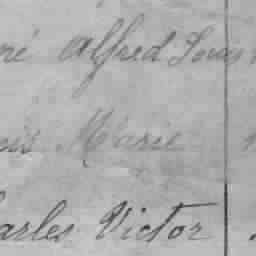 né Alfred Louis
Marie
Charles Victor